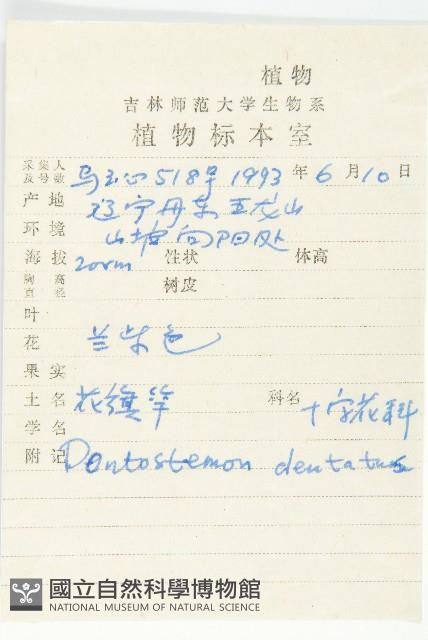 植物
吉林师范大学生物系
植物标本室
采集人及号数 马玉心 518号 1993年6月10日
产地 辽宁丹东五龙山
环境 山坡向阳处
海拔 200m 性状 体高
胸高直径 树皮
叶
花 兰紫色
果实
土名 花旗竿 科名 十字花科
学名
附记 Dontostemon dentatus
國立自然科學博物館
NATIONAL MUSEUM OF NATURAL SCIENCE